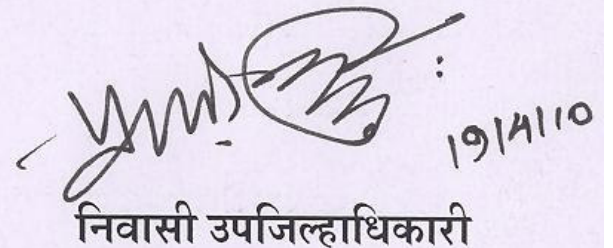 19/4/10
निवासी उपजिल्हाधिकारी